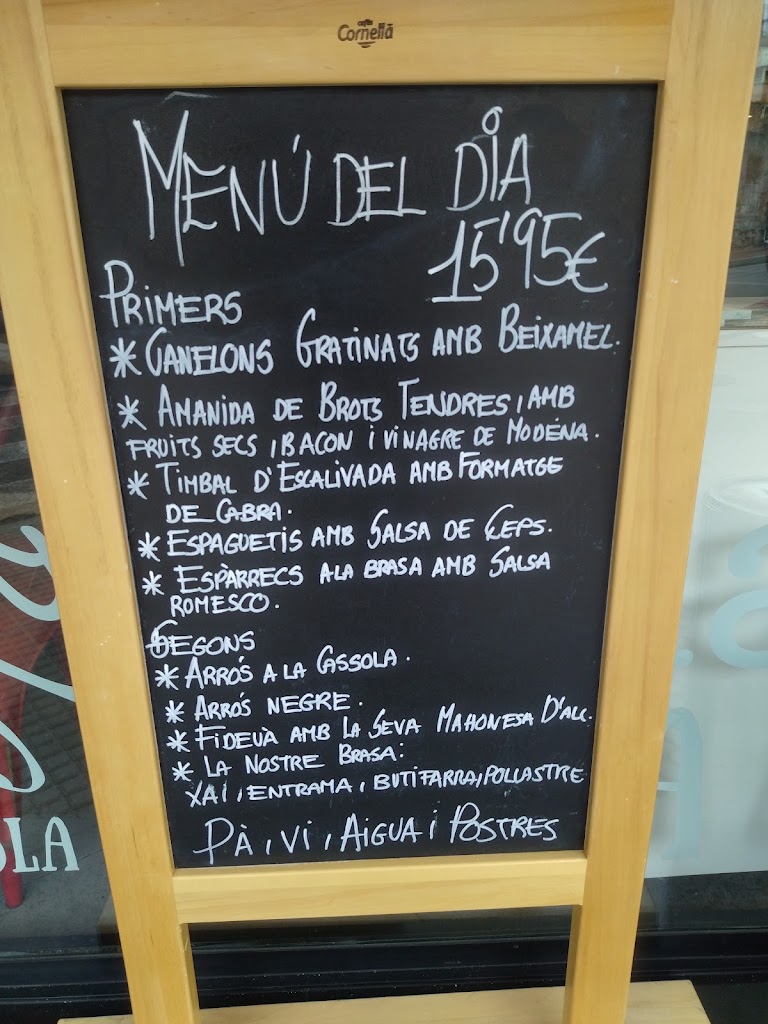 cafés
Cornellà
MENÚ DEL DIA
15'95€
PRIMERS
* CANELONS GRATINATS AMB BEIXAMEL.
* AMANIDA DE BROTS TENDRES, AMB
FRUITS SECS, BACON I VINAGRE DE MODENA.
* TIMBAL D'ESCALIVADA AMB FORMATGE
DE CABRA.
* ESPAGUETIS AMB SALSA DE CEPS.
* ESPÀRRECS A LA BRASA AMB SALSA
ROMESCO.
SEGONS
* ARRÓS A LA CASSOLA.
* ARRÓS NEGRE.
* FIDEUÀ AMB LA SEVA MAHONESA D'ALL.
* LA NOSTRE BRASA:
XAI, ENTRAMA, BUTIFARRA, POLLASTRE
PÀ, VI, AIGUA I POSTRES
OLA